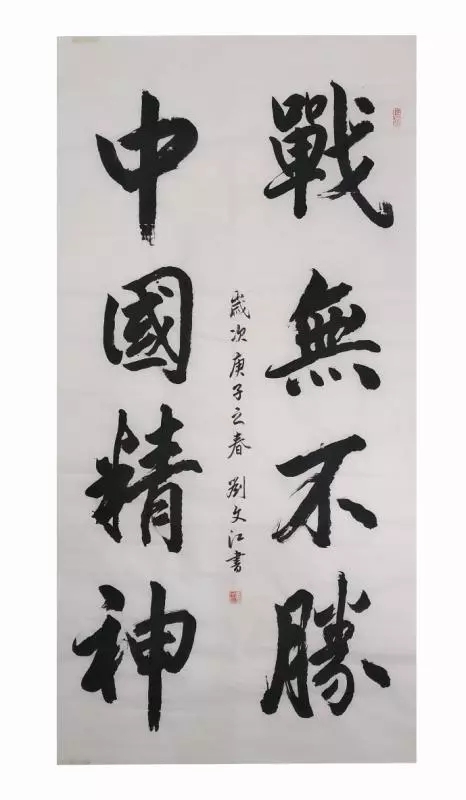 戰無不勝
中國精神
歲次庚子之春 劉文江書